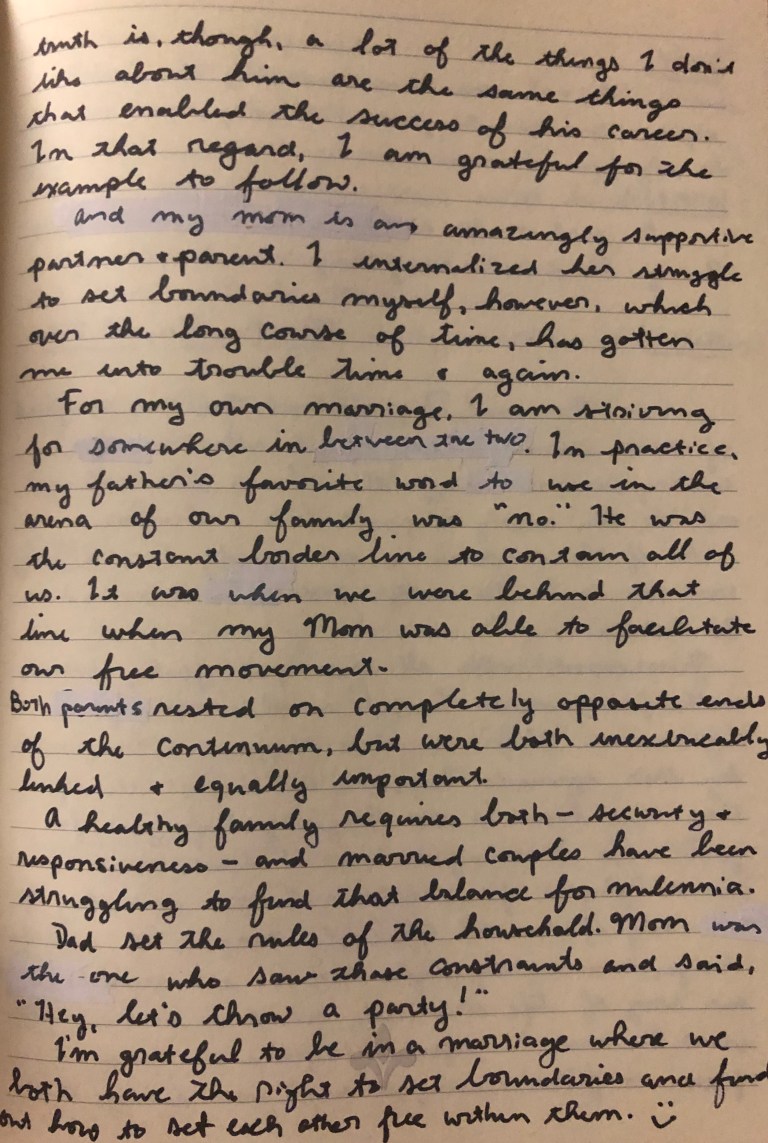 truth is, though, a lot of the things I don't
like about him are the same things
that enabled the success of his career.
In that regard, I am grateful for the
example to follow.
and my mom is an amazingly supportive
partner & parent. I internalized her struggle
to set boundaries myself, however, which
over the long course of time, has gotten
me into trouble time & again.
For my own marriage, I am striving
for somewhere in between the two. In practice,
my father's favorite word to use in the
arena of our family was "no." He was
the constant border line to contain all of
us. It was when we were behind that
line when my Mom was able to facilitate
our free movement.
Both parents rested on completely opposite ends
of the continuum, but were both inextricably
linked & equally important.
A healthy family requires both - security &
responsiveness - and married couples have been
struggling to find that balance for milennia.
Dad set the rules of the household. Mom was
the one who saw those constraints and said,
"Hey, let's throw a party!"
I'm grateful to be in a marriage where we
both have the right to set boundaries and find
out how to set each other free within them. :)